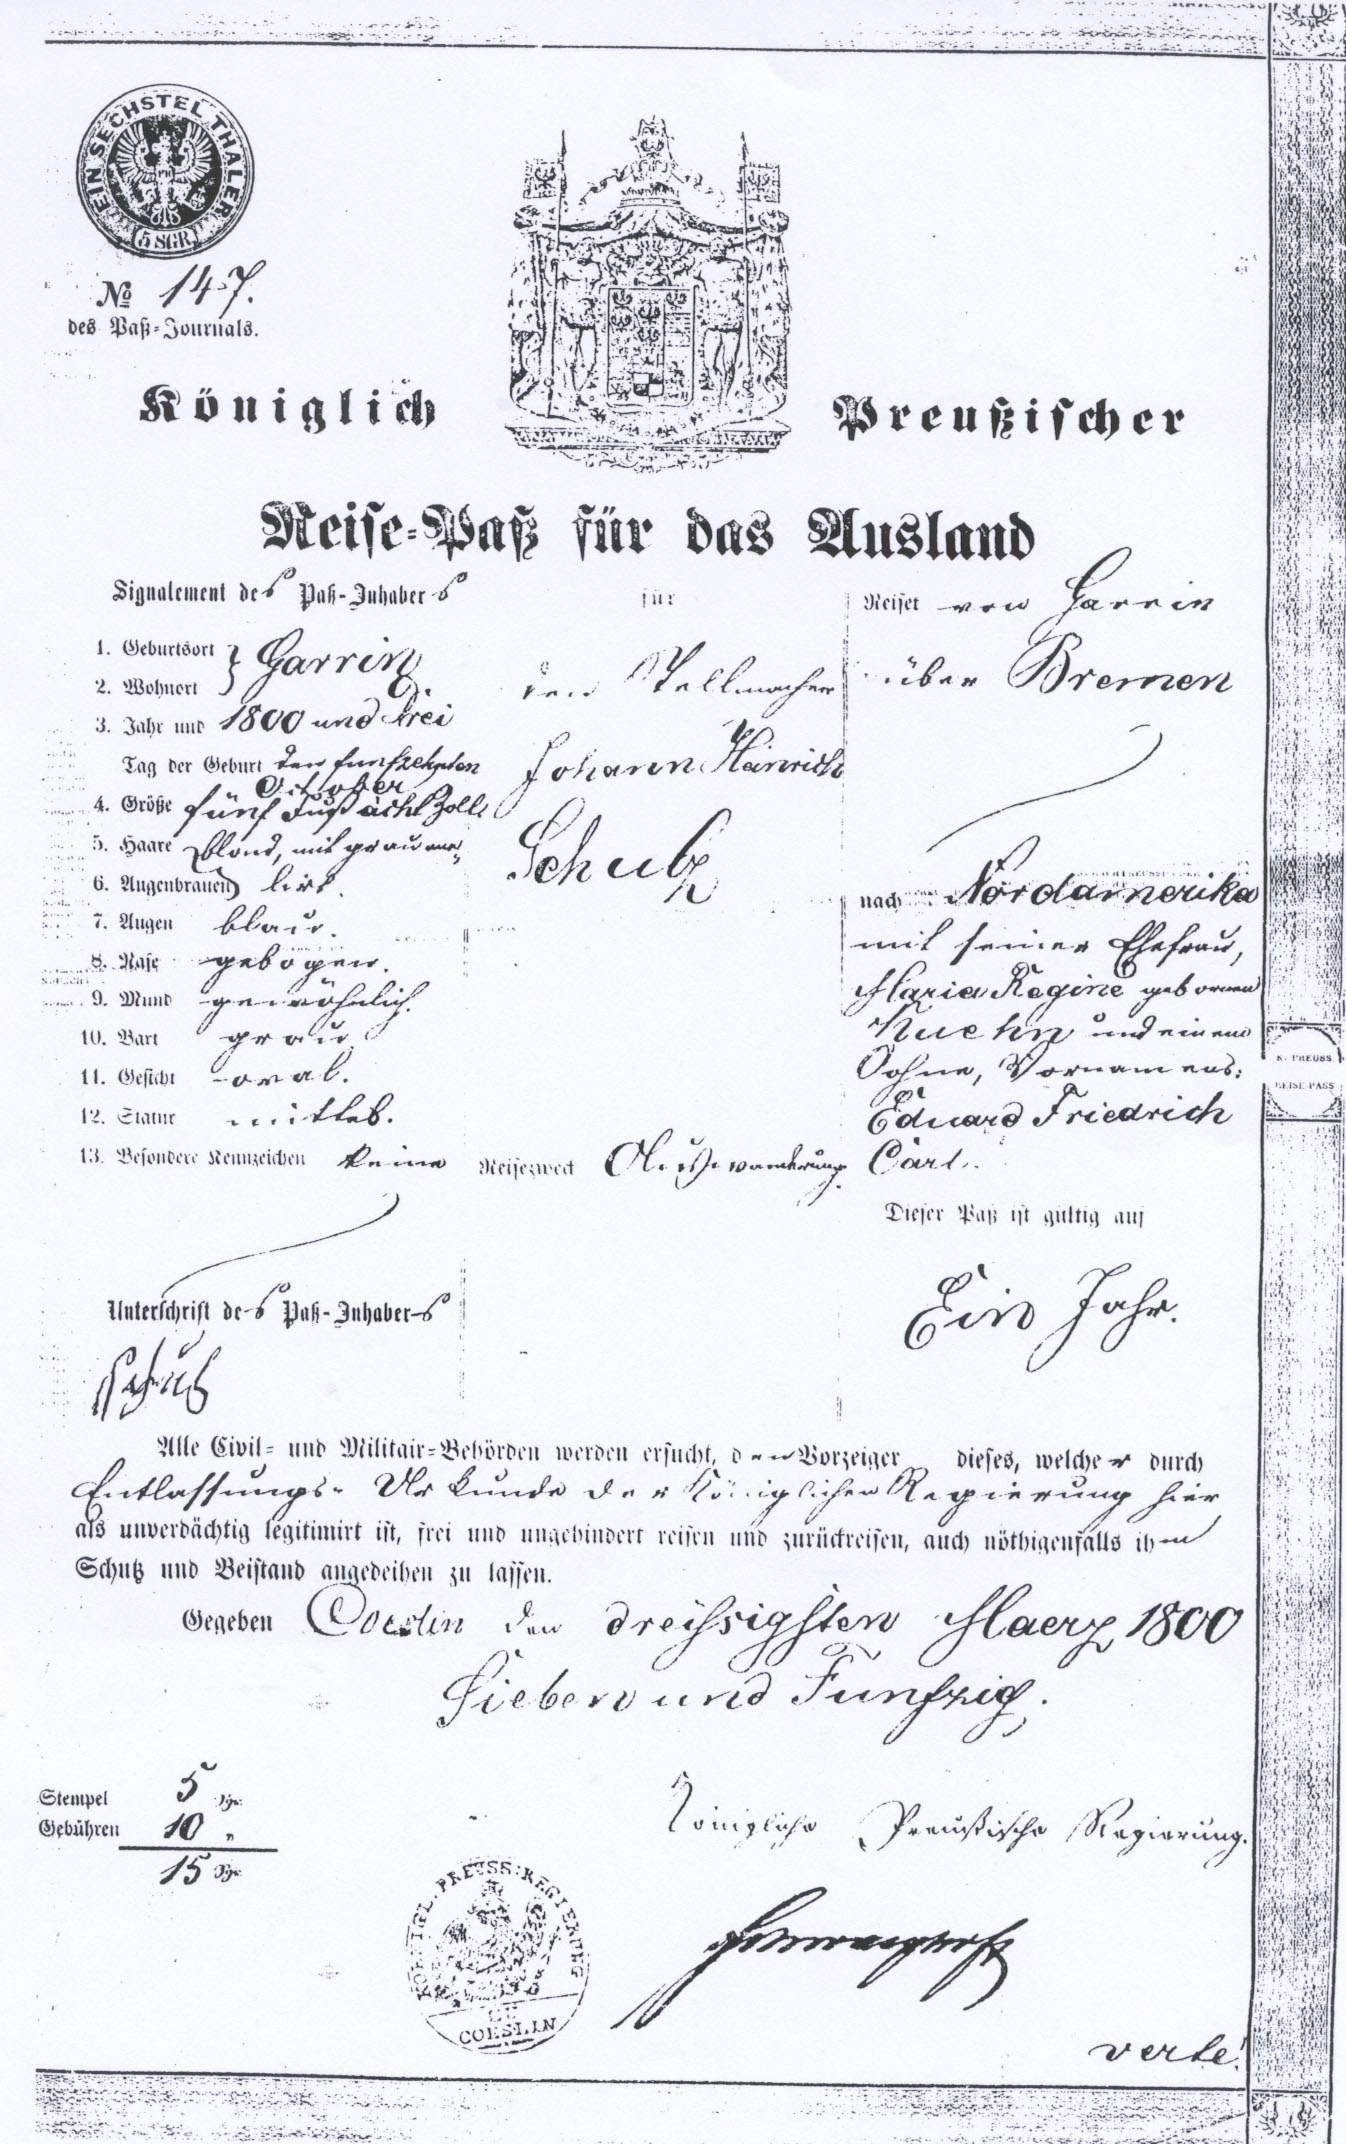 EIN SECHSTEL THALER
5 SGR
No 147.
des Paß-Journals.
Königlich Preußischer
Reise-Paß für das Ausland
Signalement des Paß-Inhabers
1. Geburtsort } Garrin
2. Wohnort
3. Jahr und 1800 und drei
Tag der Geburt den funfzehnten
October
4. Größe fünf Fuß acht Zoll
5. Haare } blond, mit grau me-
6. Augenbrauen lirt.
7. Augen blau.
8. Nase gebogen.
9. Mund gewöhnlich.
10. Bart grau.
11. Gesicht oval.
12. Statur mittel.
13. Besondere Kennzeichen keine
Unterschrift des Paß-Inhabers
Schulz
für
den Stellmacher
Johann Heinrich
Schulz
Reisezweck Auswanderung.
Reiset von Garrin
über Bremen
nach Nordamerika
mit seiner Ehefrau,
Maria Regine gebornen
Kuehn und einem
Sohne, Vornamens:
Eduard Friedrich
Carl.
Dieser Paß ist gültig auf
Ein Jahr.
Alle Civil- und Militair-Behörden werden ersucht, den Vorzeiger dieses, welcher durch
Entlassungs-Urkunde der Königlichen Regierung hier
als unverdächtig legitimirt ist, frei und ungehindert reisen und zurückreisen, auch nöthigenfalls ihm
Schutz und Beistand angedeihen zu lassen.
Gegeben Coeslin den dreißigsten Maerz 1800
Sieben und Funfzig.
Stempel 5 Sgr.
Gebühren 10 "
15 Sgr.
Königliche Preußische Regierung.
KOENIGL. PREUSS. REGIERUNG
ZU
COESLIN
verte!
K. PREUSS.
REISE-PASS